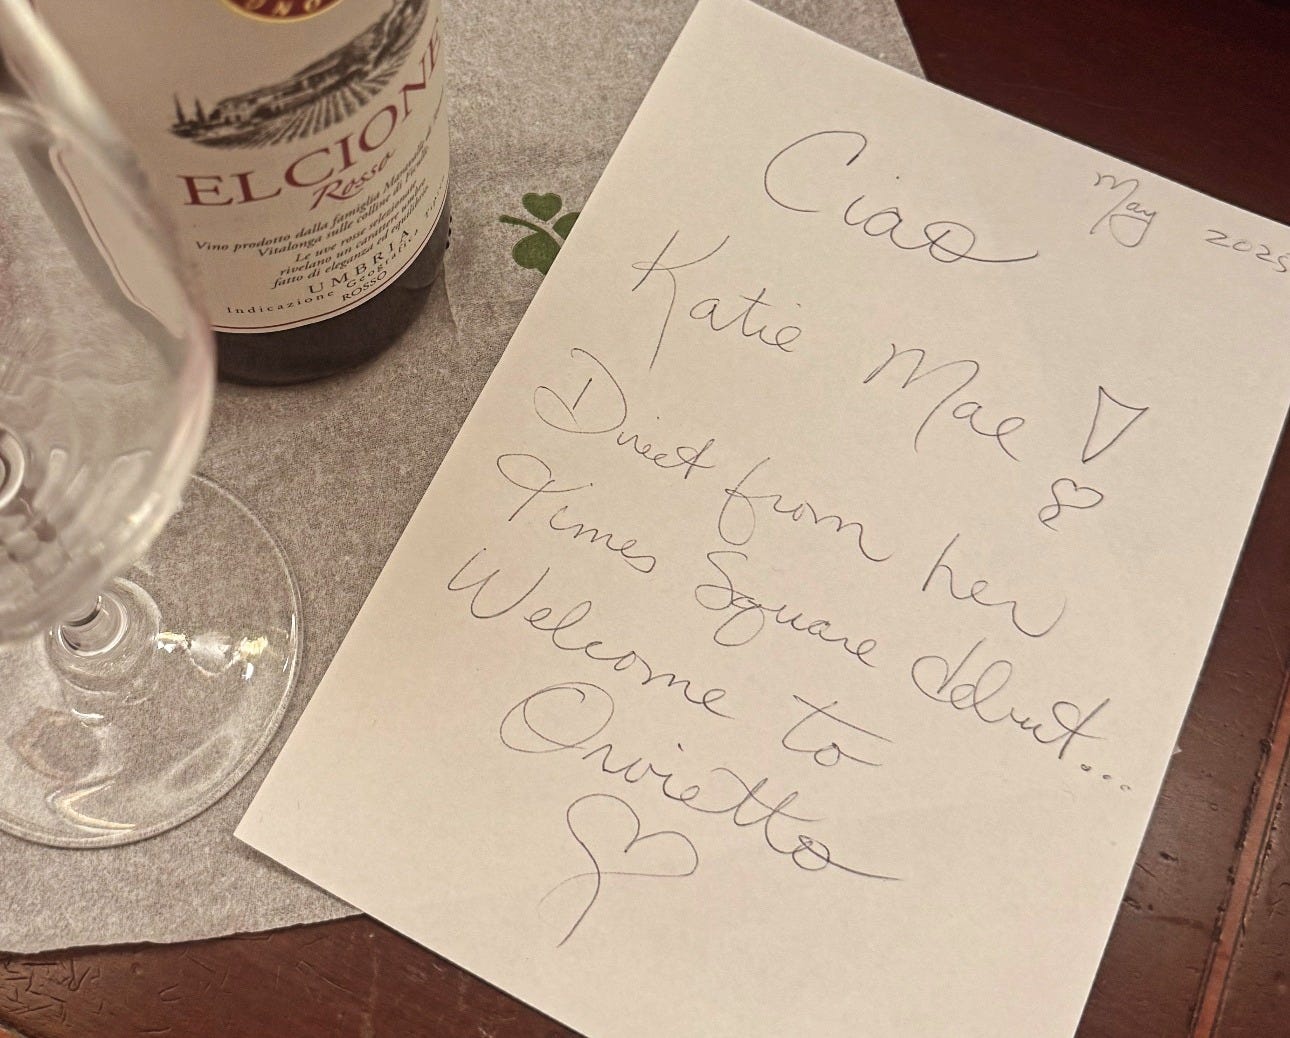 ELCIONE
Rosso
Vino prodotto dalla famiglia
Vitalonga sulle colline di
Le uve rosse selezionate
rivelano un carattere equilibrato
fatto di eleganza ed
UMBRIA
Indicazione Geografica
ROSSO
May 2025
Ciao
Katie Mae!
Direct from her
Times Square debut...
Welcome to
Orvietto